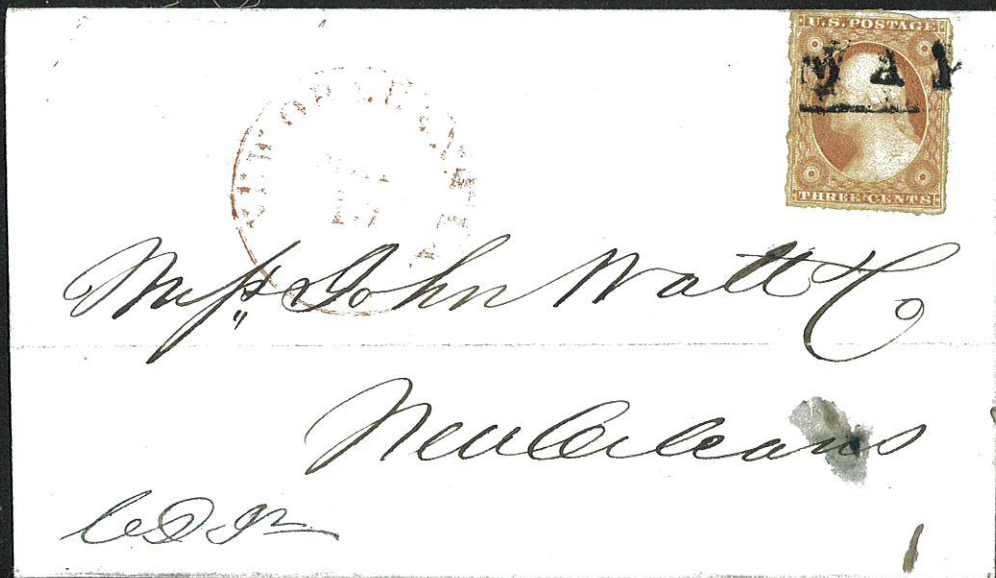 U.S. POSTAGE
WAY
THREE CENTS
NEW ORLEANS
Mess John Watt & Co
New Orleans